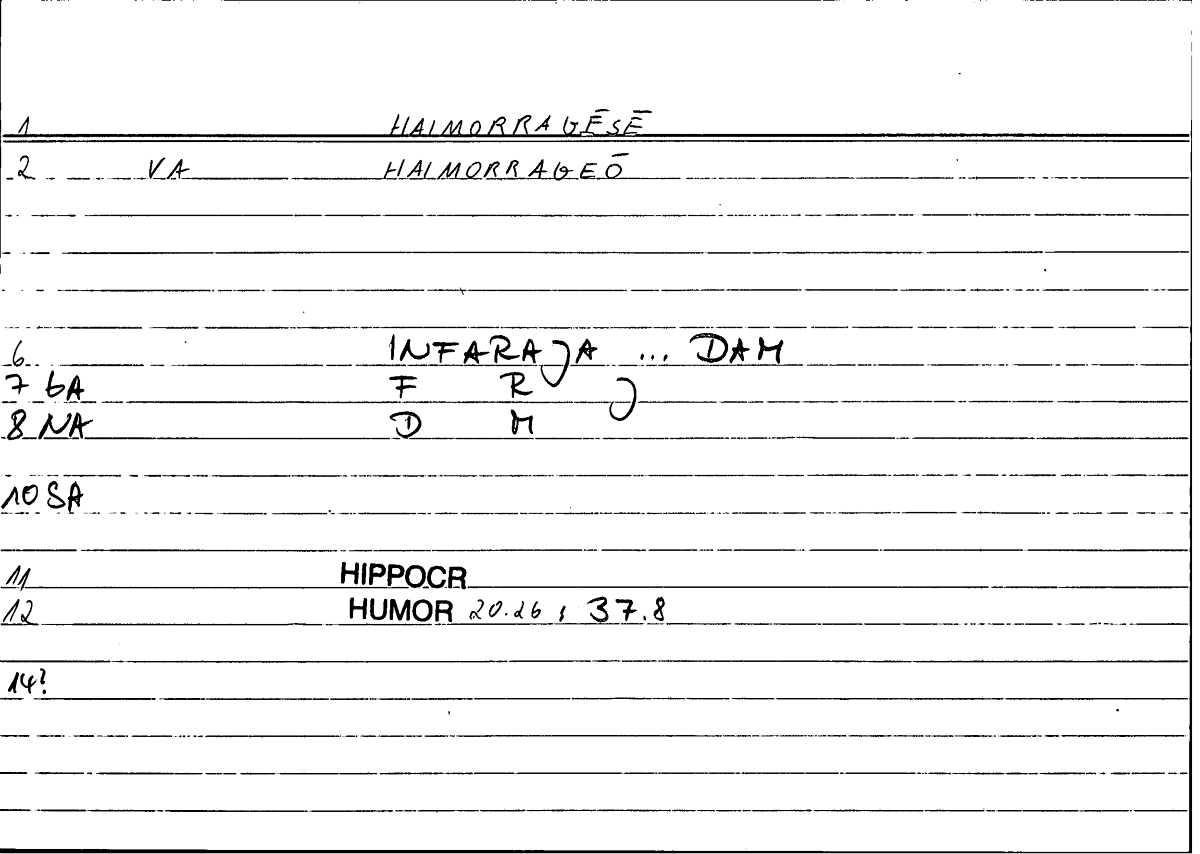 1 HAIMORRAGĒSĒ
2 VA HAIMORRAGEŌ
6 INFARAJA ... DAM
7 bA F R J
8 NA D M
10 SA
11 HIPPOCR
12 HUMOR 20.26, 37.8
14?